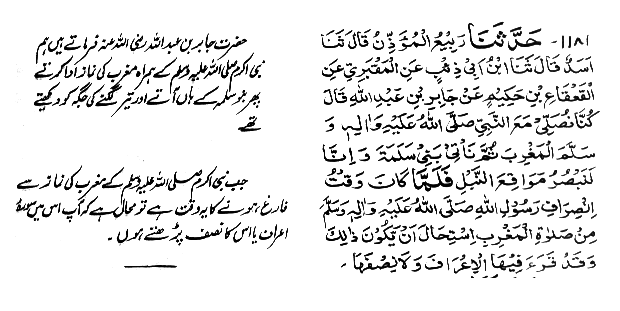 ۱۱۸۱- حَدَّثَنَا رَبِيعُ الْمُؤَذِّنُ قَالَ ثَنَا
اَسَدٌ قَالَ ثَنَا ابْنُ اَبِيْ ذِئْبٍ عَنِ الْمَقْبُرِيِّ عَنِ
الْقَعْقَاعِ بْنِ حَكِيْمٍ عَنْ جَابِرِ بْنِ عَبْدِ اللهِ قَالَ
كُنَّا نُصَلِّيْ مَعَ النَّبِيِّ صَلَّى اللهُ عَلَيْهِ وَاٰلِهٖ وَ
سَلَّمَ الْمَغْرِبَ ثُمَّ نَأْتِيْ بَنِيْ سَلِمَةَ وَ اِنَّا
لَنُبْصِرُ مَوَاقِعَ النَّبْلِ فَلَمَّا كَانَ وَقْتُ
اِنْصِرَافِ رَسُوْلِ اللهِ صَلَّى اللهُ عَلَيْهِ وَاٰلِهٖ وَسَلَّمَ
مِنْ صَلٰوةِ الْمَغْرِبِ اِسْتَحَالَ اَنْ يَّكُوْنَ ذٰلِكَ
وَقَدْ قَرَءَ فِيْهَا الْاَعْرَافَ وَلَا نِصْفَهَا -
حضرت جابر بن عبداللہ رضی اللہ عنہ فرماتے ہیں ہم
نبی اکرم صلی اللہ علیہ وسلم کے ہمراہ مغرب کی نماز ادا کرتے
پھر بنو سلمہ کے ہاں آتے اور تیر لگنے کی جگہ کو دیکھتے
تھے
جب نبی اکرم صلی اللہ علیہ وسلم کے مغرب کی نماز سے
فارغ ہونے کا یہ وقت ہے تو محال ہے کہ آپ اس میں سورۃ
اعراف یا اس کا نصف پڑھتے ہوں۔